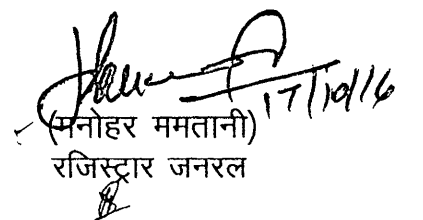 17/10/16
(मनोहर ममतानी)
रजिस्ट्रार जनरल